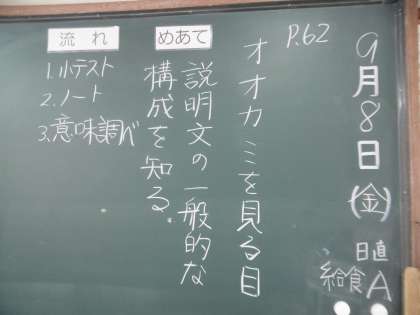 9月8日(金)
日直
給食A
P.62
オオカミを見る目
めあて
説明文の一般的な
構成を知る。
流れ
1.小テスト
2.ノート
3.意味調べ